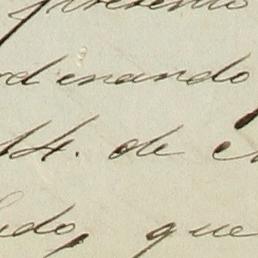 presento
rdenando
14. de
edo, que